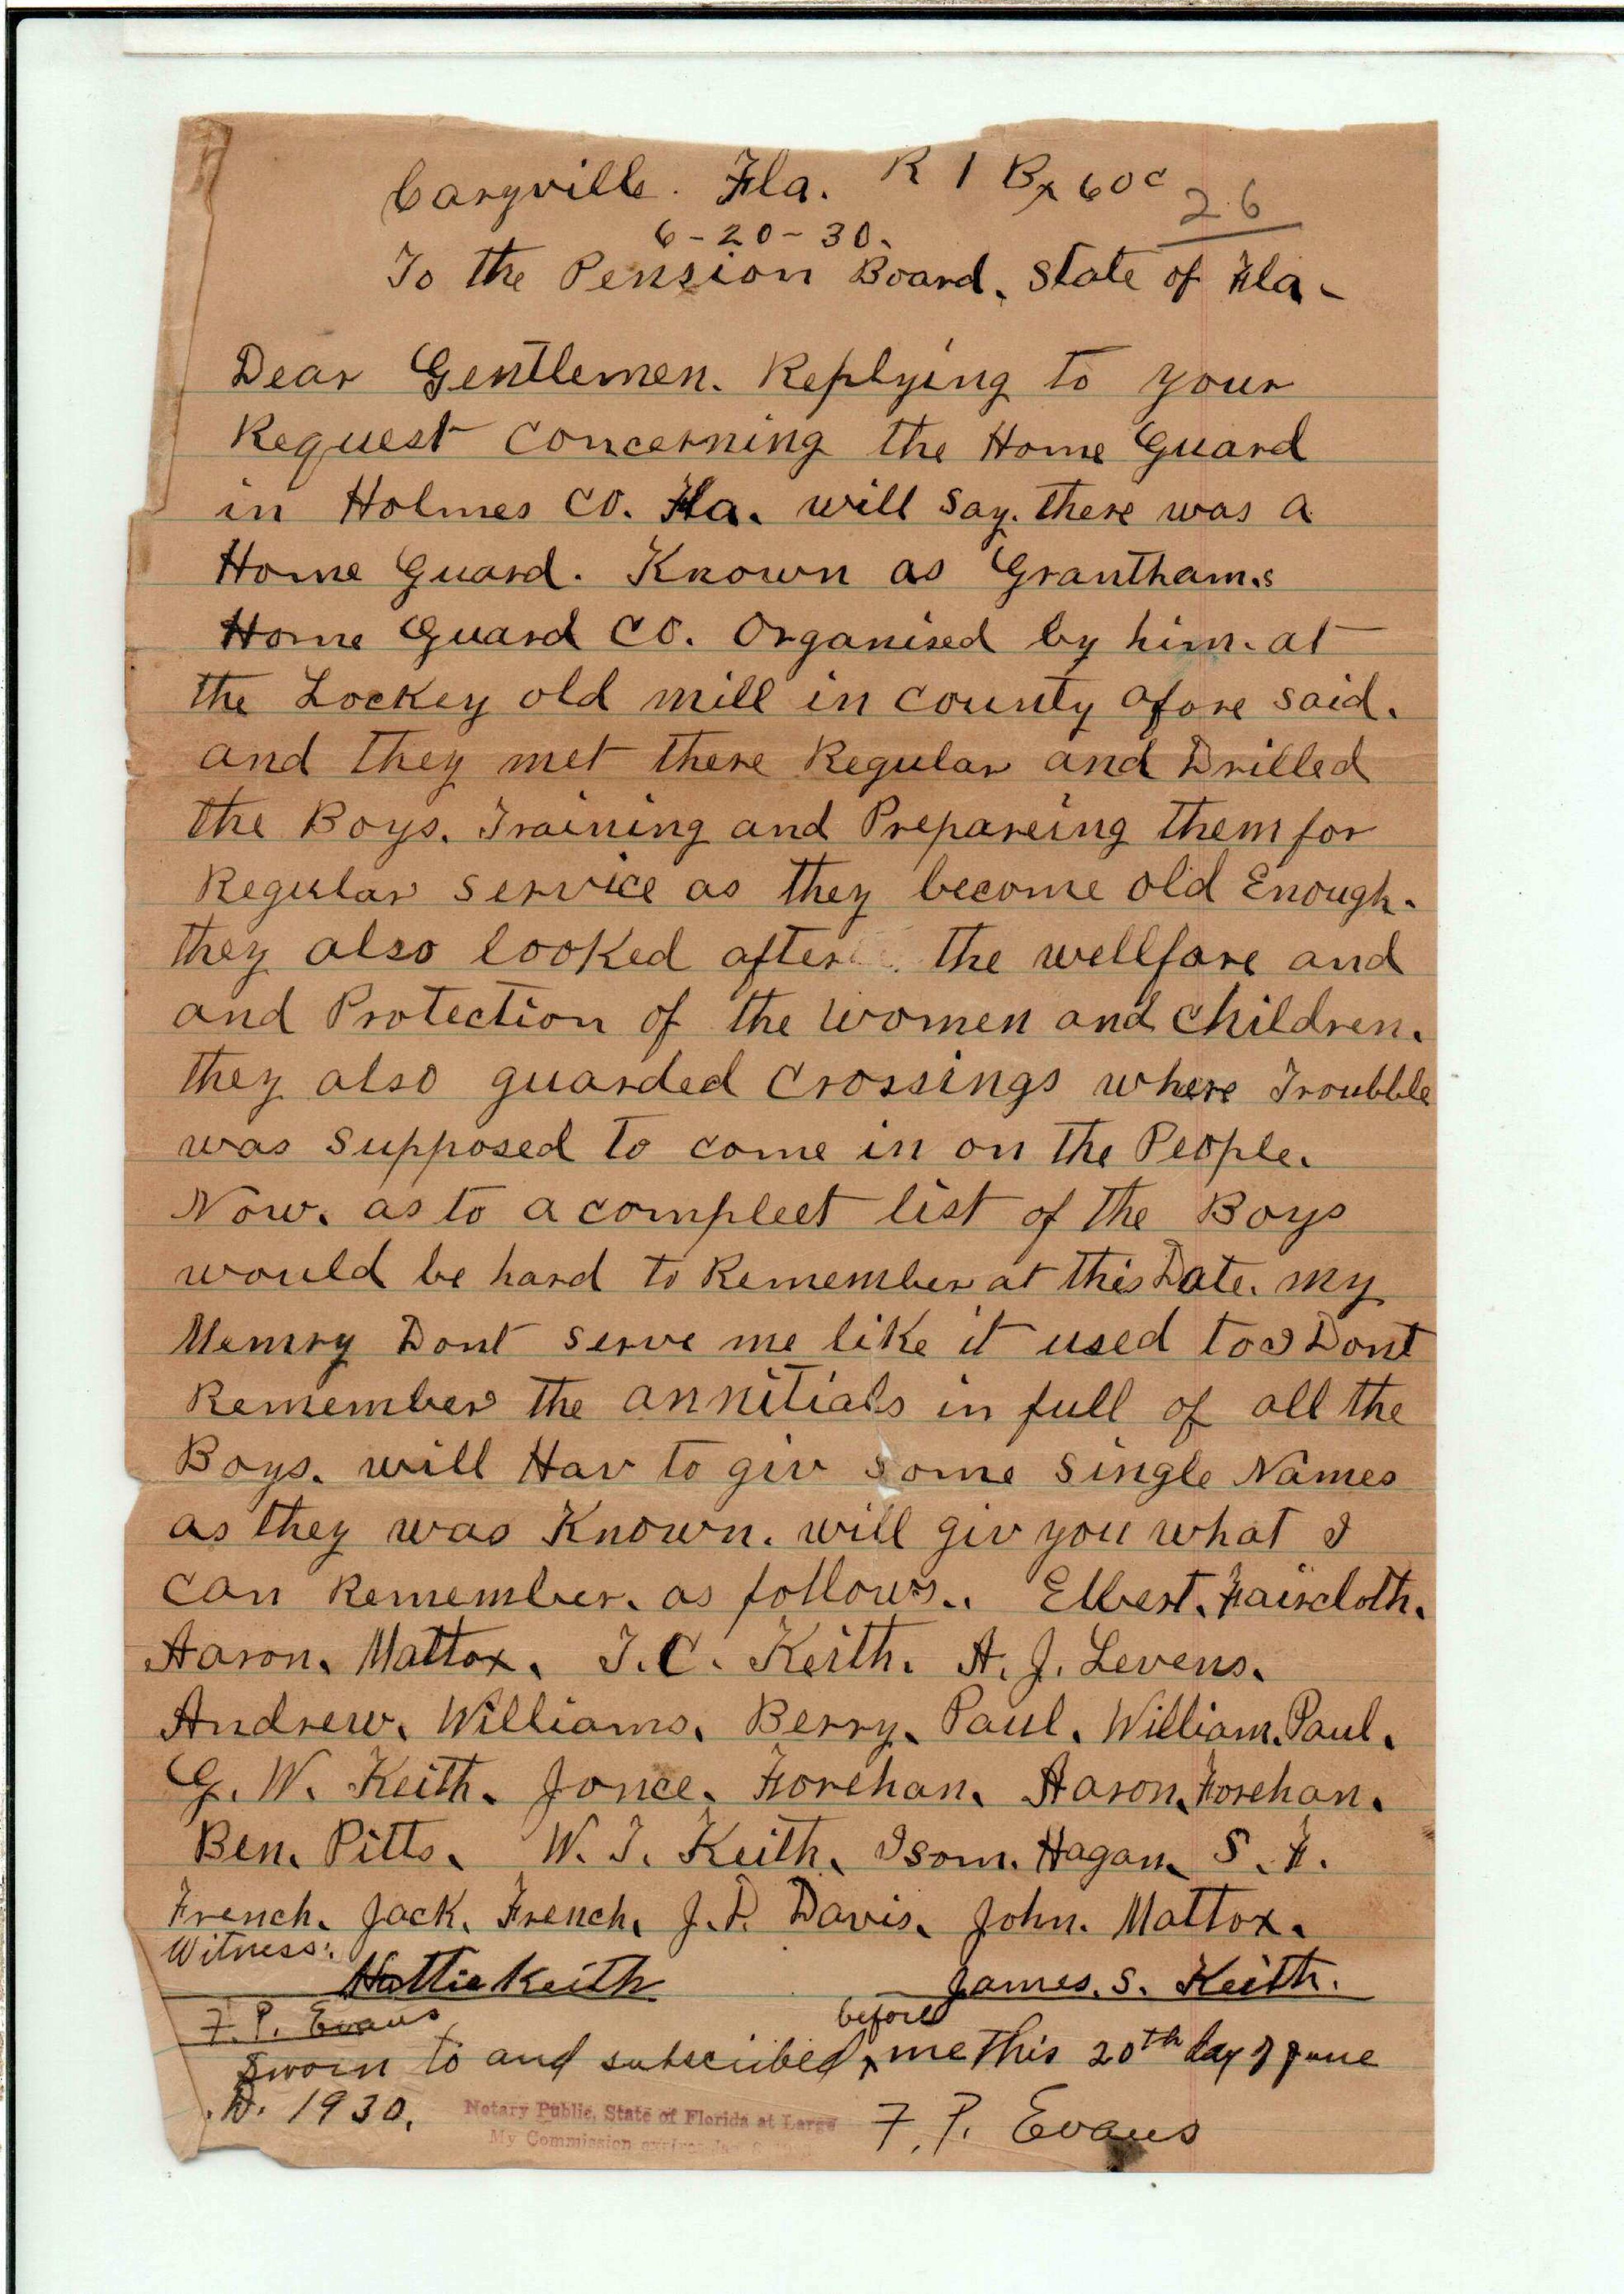 Caryville. Fla. R 1 Bx 60c
26
6-20-30.
To the Pension Board. State of Fla-
Dear Gentlemen. Replying to your
Request concerning the Home Guard
in Holmes Co. Fla. will say. there was a
Home Guard. Known as Grantham.s
Home Guard Co. Organised by him. at
the Lockey old mill in county afore said.
and they met there Regular and Drilled
the Boys. Training and Prepareing them for
Regular service as they become old Enough.
they also looked after the wellfare and
and Protection of the women and children.
they also guarded crossings where Troubble
was supposed to come in on the People.
Now. as to a compleet list of the Boys
would be hard to Remember at this Date. my
Memry Dont serve me like it used to I Dont
Remember the annitials in full of all the
Boys. will Hav to giv some single Names
as they was Known. will giv you what I
can Remember. as follows.. Elbert. Faircloth.
Aaron. Mattox. T.C. Keith. A.J. Levens.
Andrew. Williams. Berry. Paul. William. Paul.
G. W. Keith. Jonce. Forehan. Aaron. Forehan.
Ben. Pitts. W. T. Keith. Isom. Hagan. S. F.
French. Jack. French. J.P. Davis. John. Mattox.
Witness:
Hattie Keith James. S. Keith.
F. P. Evans
before
Sworn to and subscribed ^ me this 20th day of June
.D. 1930.
Notary Public, State of Florida at Large
My Commission expires
F. P. Evans